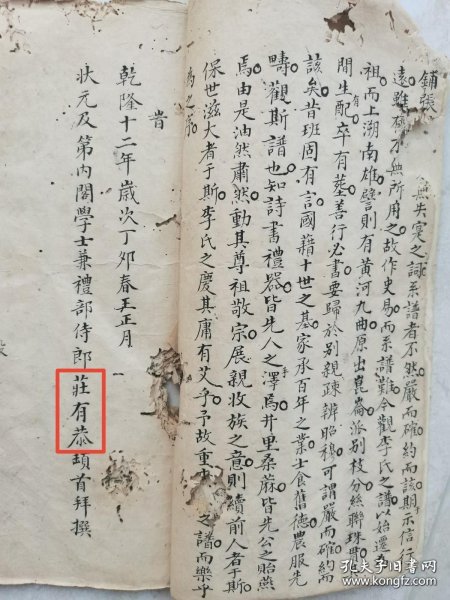 鋪張
無失實之詞系譜者不然嚴而確約而該期示信行
遠雖確不無所用之故作史易而系譜難今觀李氏之譜以始遷為
祖而上溯南雄譬則有黃河九曲原出崑崙派別枝分絲聯珠
間有生配卒有葬善行必書要歸於別親疎辨昭穆可謂嚴而確約而
該矣昔班固有言國籍十世之基家承百年之業士食舊德農服先
疇觀斯譜也知詩書禮器皆先人之手澤焉井里桑蔴皆先公之貽燕
焉由是油然肅然動其尊祖敬宗展親收族之意則續前人者于斯
保世滋大者于斯李氏之慶其庸有艾乎予故重 之譜而樂乎
為之序
旹
乾隆十二年歲次丁夘春王正月
狀元及第內閣學士兼禮部侍郎莊有恭頓首拜撰
孔夫子旧书网
book.kongfz.com